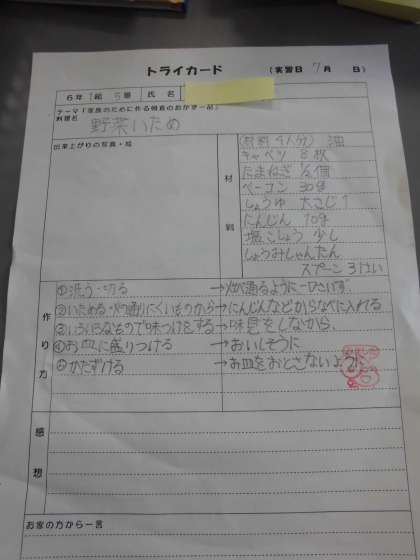 トライカード
（実習日 7月 日）
6年 組 5番 氏名
テーマ「家族のために作る朝食のおかず一品」
料理名
野菜いため
出来上がりの写真・絵
材料
（材料 4人分） 油
キャベツ 8枚
たまねぎ 1/2個
ベーコン 30g
しょうゆ 大さじ1
にんじん 70g
塩こしょう 少し
しょうみしゃんたん
スプーン 3ばい
作り方
①洗う・切る →火が通るように
②いためる・火の通りにくいものから→にんじんなどからなべに入れる
③いろいろなもので味つけをする→味見をしながら、
④お皿に盛りつける →おいしそうに
⑤かたずける →お皿をおとさないように
感想
お家の方から一言